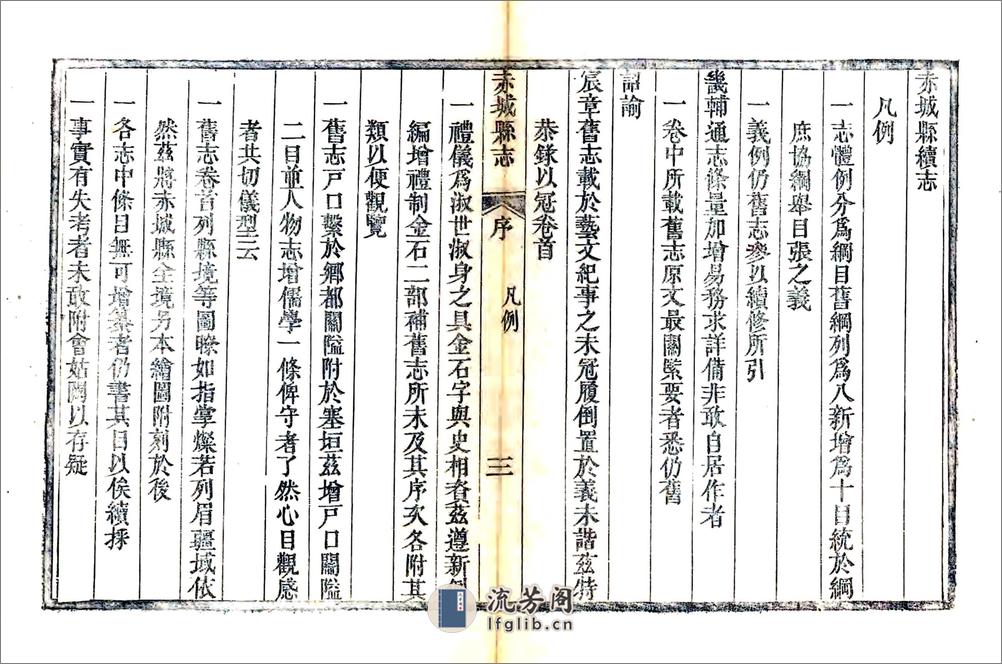 赤城縣續志
凡例
一志體例分爲綱目舊綱列爲八新增爲十目統於綱
庶協綱舉目張之義
一義例仍舊志參以續修所引
畿輔通志條量加增易務求詳備非敢自居作者
一卷中所載舊志原文最關緊要者悉仍舊
詔諭
宸章舊志載於藝文紀事之末冠履倒置於義未諧茲特
恭錄以冠卷首
赤城縣志 序 凡例 三
一禮儀爲淑世淑身之具金石字與史相資茲遵新例
編增禮制金石二部補舊志所未及其序次各附其
類以便觀覽
一舊志戸口繫於鄉都關隘附於塞垣茲增戸口關隘
二目並人物志增儒學一條俾守者了然心目觀感
者共切儀型云
一舊志卷首列縣境等圖瞭如指掌燦若列眉疆域依
然茲將赤城縣全境另本繪圖附刻於後
一各志中條目無可增纂者仍書其目以俟續採
一事實有失考者未敢附會姑闕以存疑
流芳阁
lfglib.cn